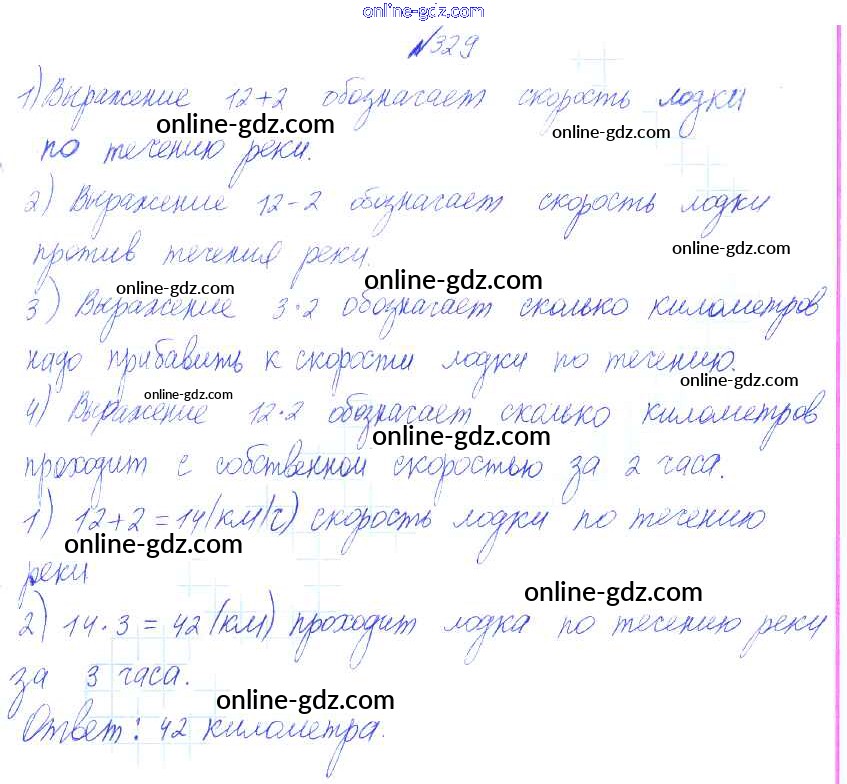 online-gdz.com
№329
1) Выражение 12+2 обозначает скорость лодки
online-gdz.com
online-gdz.com
по течению реки.
2) Выражение 12-2 обозначает скорость лодки
против течения реки.
online-gdz.com
online-gdz.com
online-gdz.com
3) Выражение 3·2 обозначает сколько километров
надо прибавить к скорости лодки по течению.
online-gdz.com
online-gdz.com
4) Выражение 12·2 обозначает сколько километров
online-gdz.com
проходит с собственной скоростью за 2 часа.
1) 12+2=14(км/ч) скорость лодки по течению
online-gdz.com
реки
online-gdz.com
2) 14·3=42(км) проходит лодка по течению реки
за 3 часа.
online-gdz.com
Ответ: 42 километра.